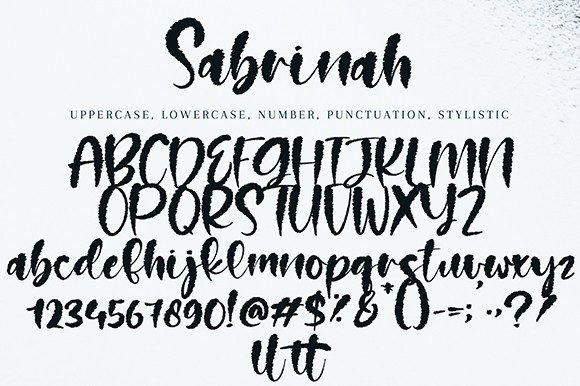 Sabrinah
UPPERCASE, LOWERCASE, NUMBER, PUNCTUATION, STYLISTIC
ABCDEFGHIJKLMN
OPQRSTUVWXYZ
abcdefhijklmnopqrstuvwxyz
1234567890!@#$%&*()-=;:.,??/
ll tt